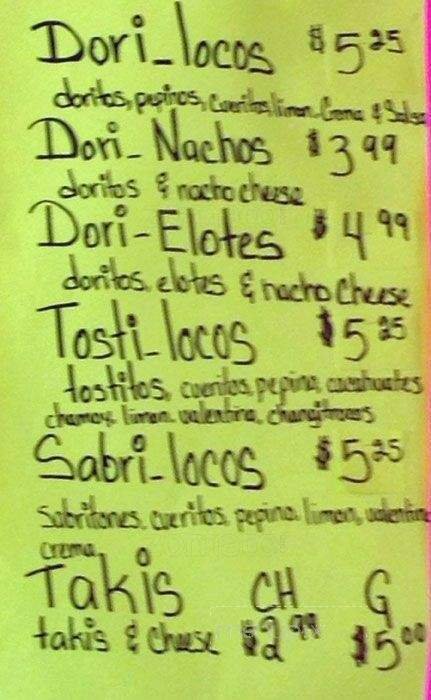 Dori-locos $5.25
doritos, pepinos, cueritos, limon, Crema & Salsa
Dori-Nachos $3.99
doritos & nacho cheese
Dori-Elotes $4.99
doritos, elotes & nacho Cheese
Tosti-locos $5.25
tostitos, cueritos, pepino, cacahuates
chamoy, limon, valentina,
Sabri-locos $5.25
Sabritones, cueritos, pepino, limon, valentina
crema,
Takis CH G
takis & Cheese $2.99 $5.00